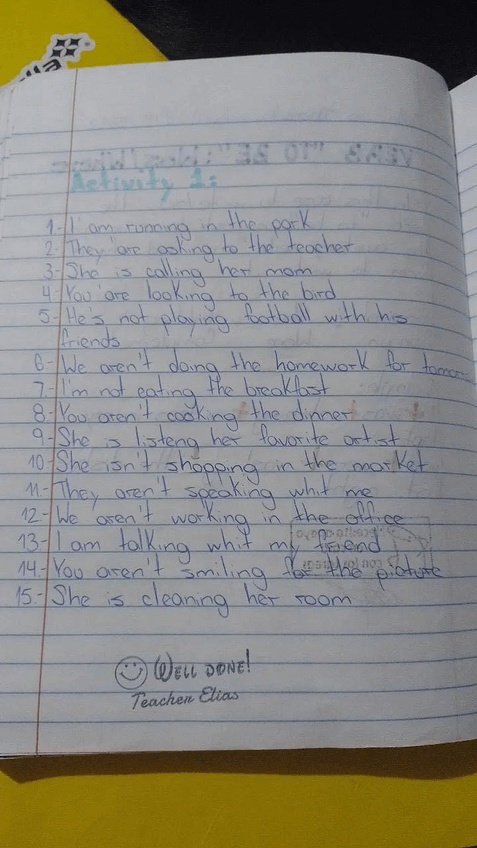 Activity 1:
1- I am running in the park
2- They are asking to the teacher
3- She is calling her mom
4- You are looking to the bird
5- He's not playing football with his
friends
6- We aren't doing the homework for tomor
7- I'm not eating the breakfast
8- You aren't cooking the dinner
9- She is listeng her favorite artist
10- She isn't shopping in the market
11- They aren't speaking whit me
12- We aren't working in the office
13- I am talking whit my friend
14- You aren't smiling for the picture
15- She is cleaning her room
WELL DONE!
Teacher Elias